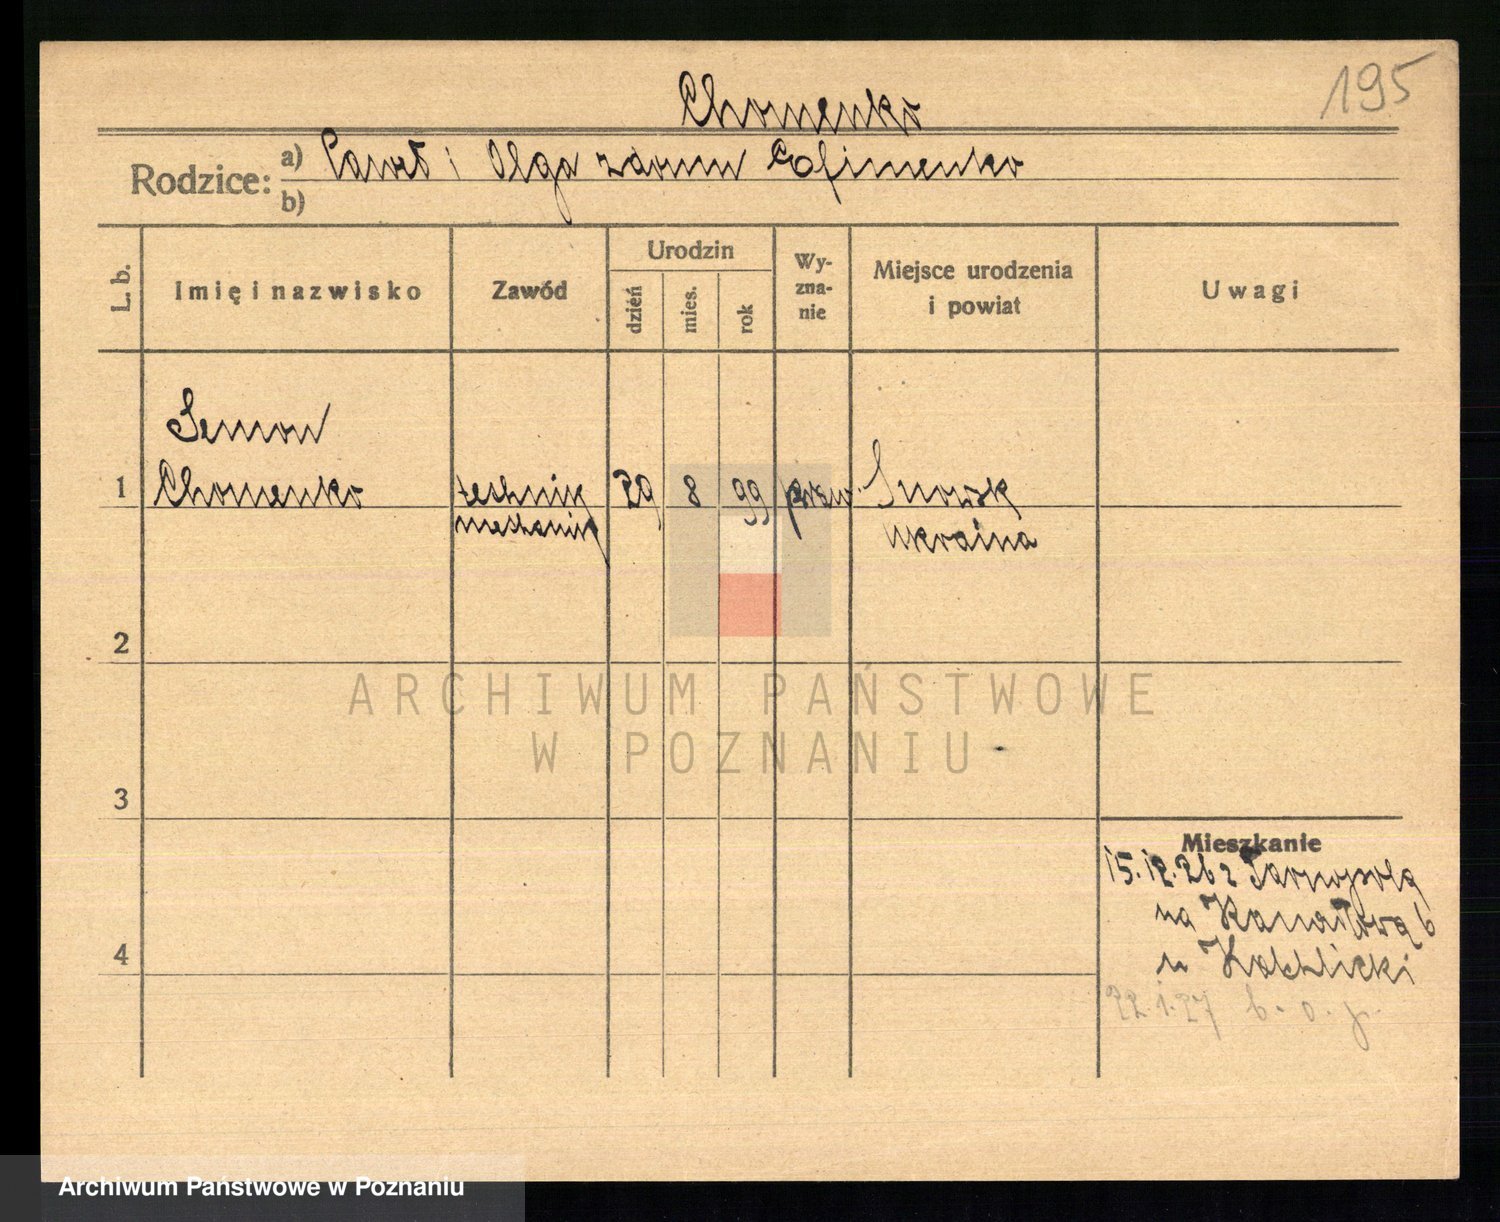 195
Chomenko
Rodzice: a) Paweł i Olga z domu Efimenko
b)
L. b.
Imię i nazwisko
Zawód
Urodzin
dzień
mies.
rok
Wy-
zna-
nie
Miejsce urodzenia
i powiat
Uwagi
Semon
1 Chomenko technik 29 8 99 praw. Snowsk
mechanik Ukraina
2
ARCHIWUM PAŃSTWOWE
W POZNANIU
3
Mieszkanie
15.12.26 z Tarnopola
na Kanałową 6
u
4
22.1.27 b. o. j.
Archiwum Państwowe w Poznaniu